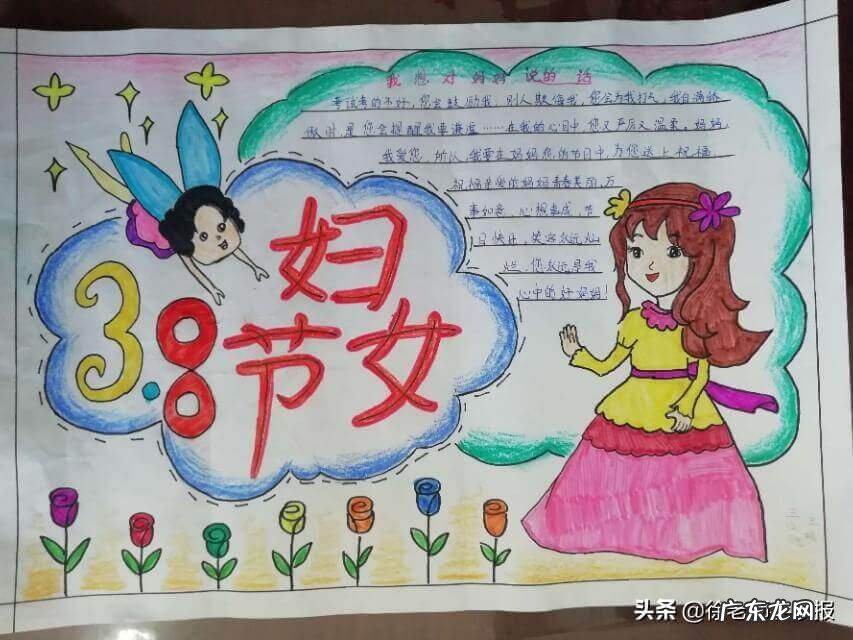 我想对妈妈说的话
考试考的不好,您会鼓励我;别人欺侮我,您会为我打气;我自满骄
傲时,是您会提醒我要谦虚……在我的心目中,您又严厉又温柔。妈妈,
我爱您,所以,我要在妈妈您的节日中,为您送上祝福
祝福亲爱的妈妈青春美丽,万
事如意,心想事成,节
日快乐,笑容永远灿
烂,您永远是我
心中的好妈妈!
3.8
妇女
节
头条